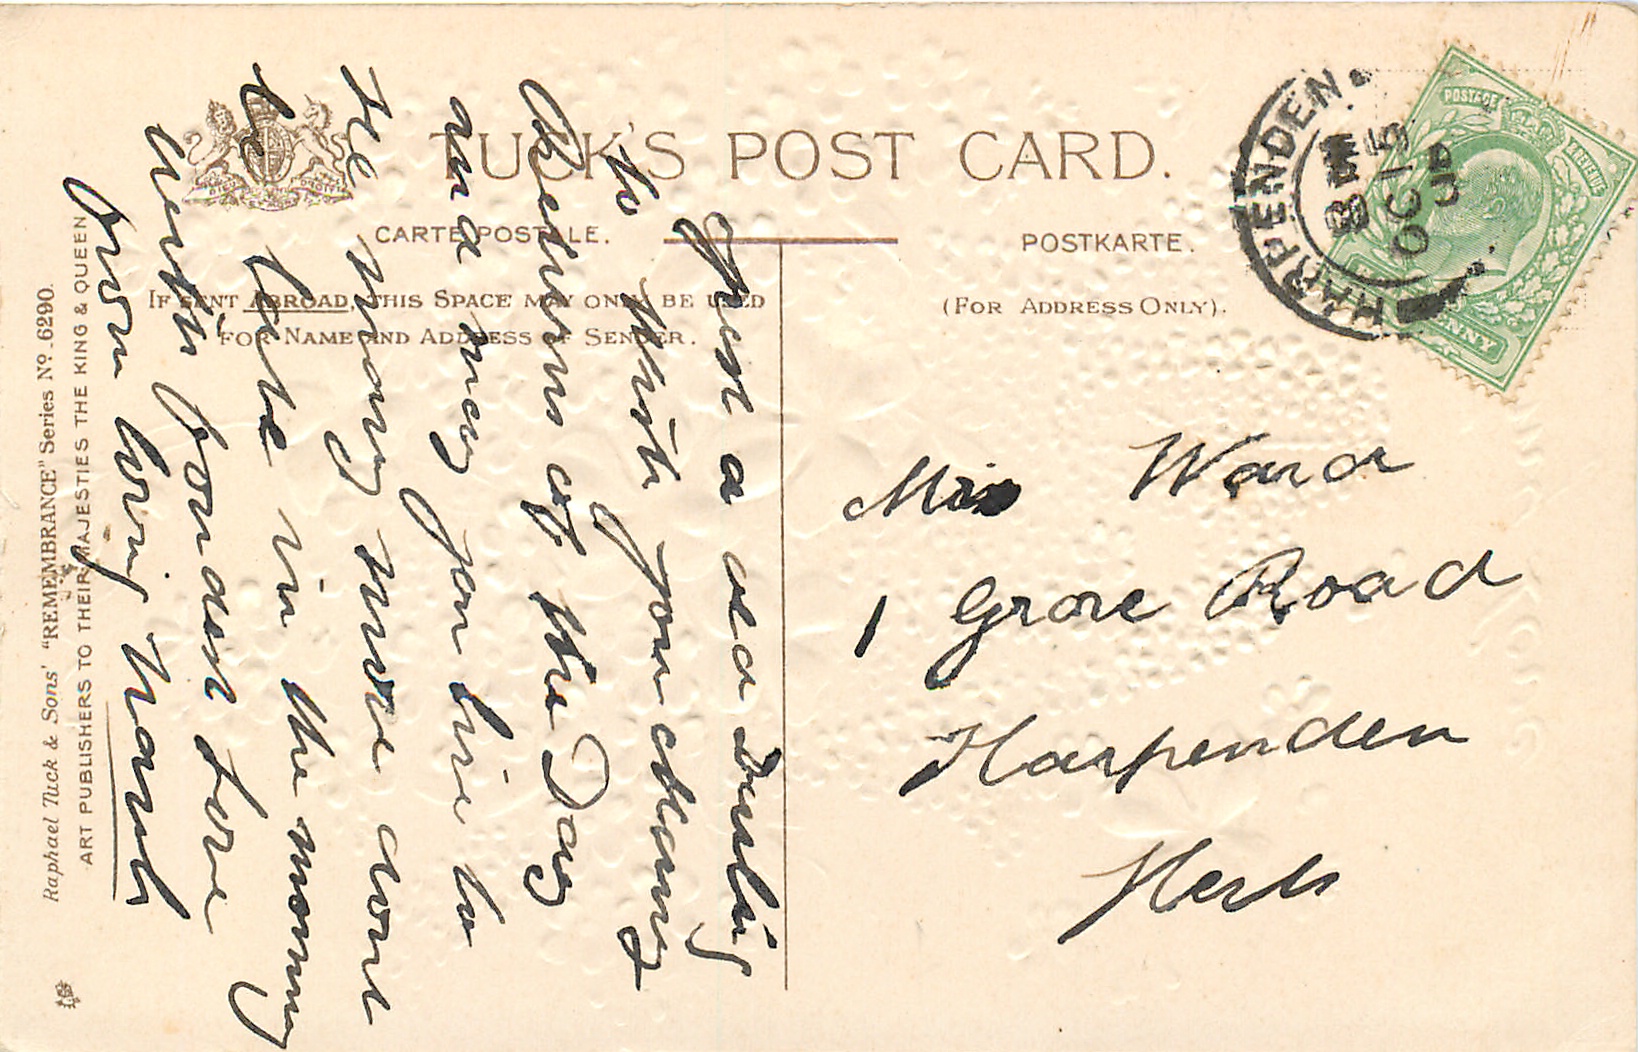 TUCK'S POST CARD.
CARTE POSTALE.
POSTKARTE.
IF SENT ABROAD, THIS SPACE MAY ONLY BE USED
FOR NAME AND ADDRESS OF SENDER.
(FOR ADDRESS ONLY).
Raphael Tuck & Sons' "REMEMBRANCE" Series Nº 6290.
ART PUBLISHERS TO THEIR MAJESTIES THE KING & QUEEN
HARPENDEN
8 PM
OC 15
09
POSTAGE
& REVENUE
Miss Ward
1 Grove Road
Harpenden
Herts
Just a
to wish you Many
Returns of the Day
and may you live to
see many more dont
be late in the morning
with fondest love
from loving